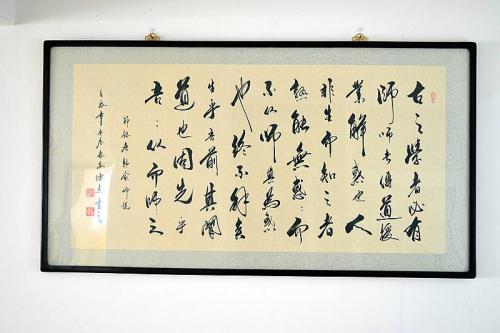 古之學者必有
師師者傳道授
業解惑也人
非生而知之者
孰能無惑々而
不从師其為惑
也終不解矣
生乎吾前其聞
道也固先乎
吾々从而師之
節錄唐韓愈師說